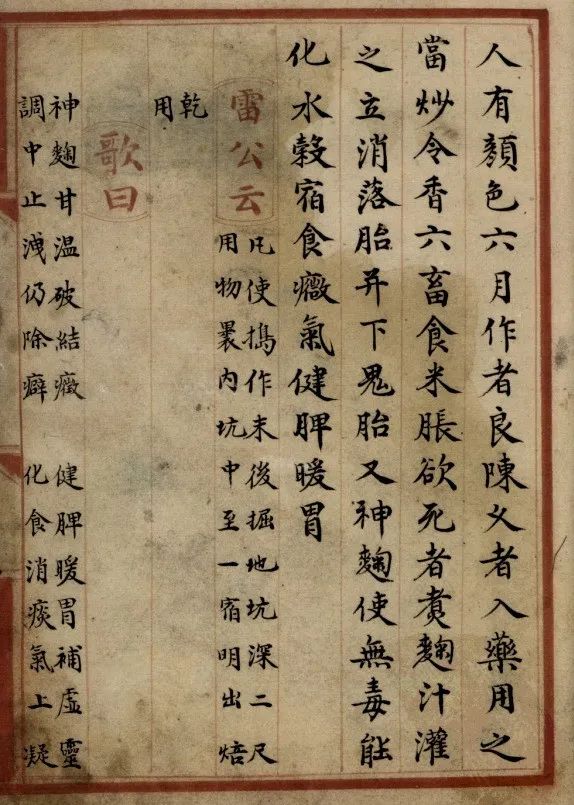 人有顏色六月作者良陳久者入藥用之
當炒令香六畜食米脹欲死者煑麴汁灌
之立消落胎并下鬼胎又神麴使無毒能
化水糓宿食癥氣健脾暖胃
雷公云
凡使搗作末後掘地坑深二尺
用物褁內坑中至一宿明出焙
乾
用
歌曰
神麴甘温破結癥 健脾暖胃補虛靈
調中止洩仍除癖 化食消痰氣上凝